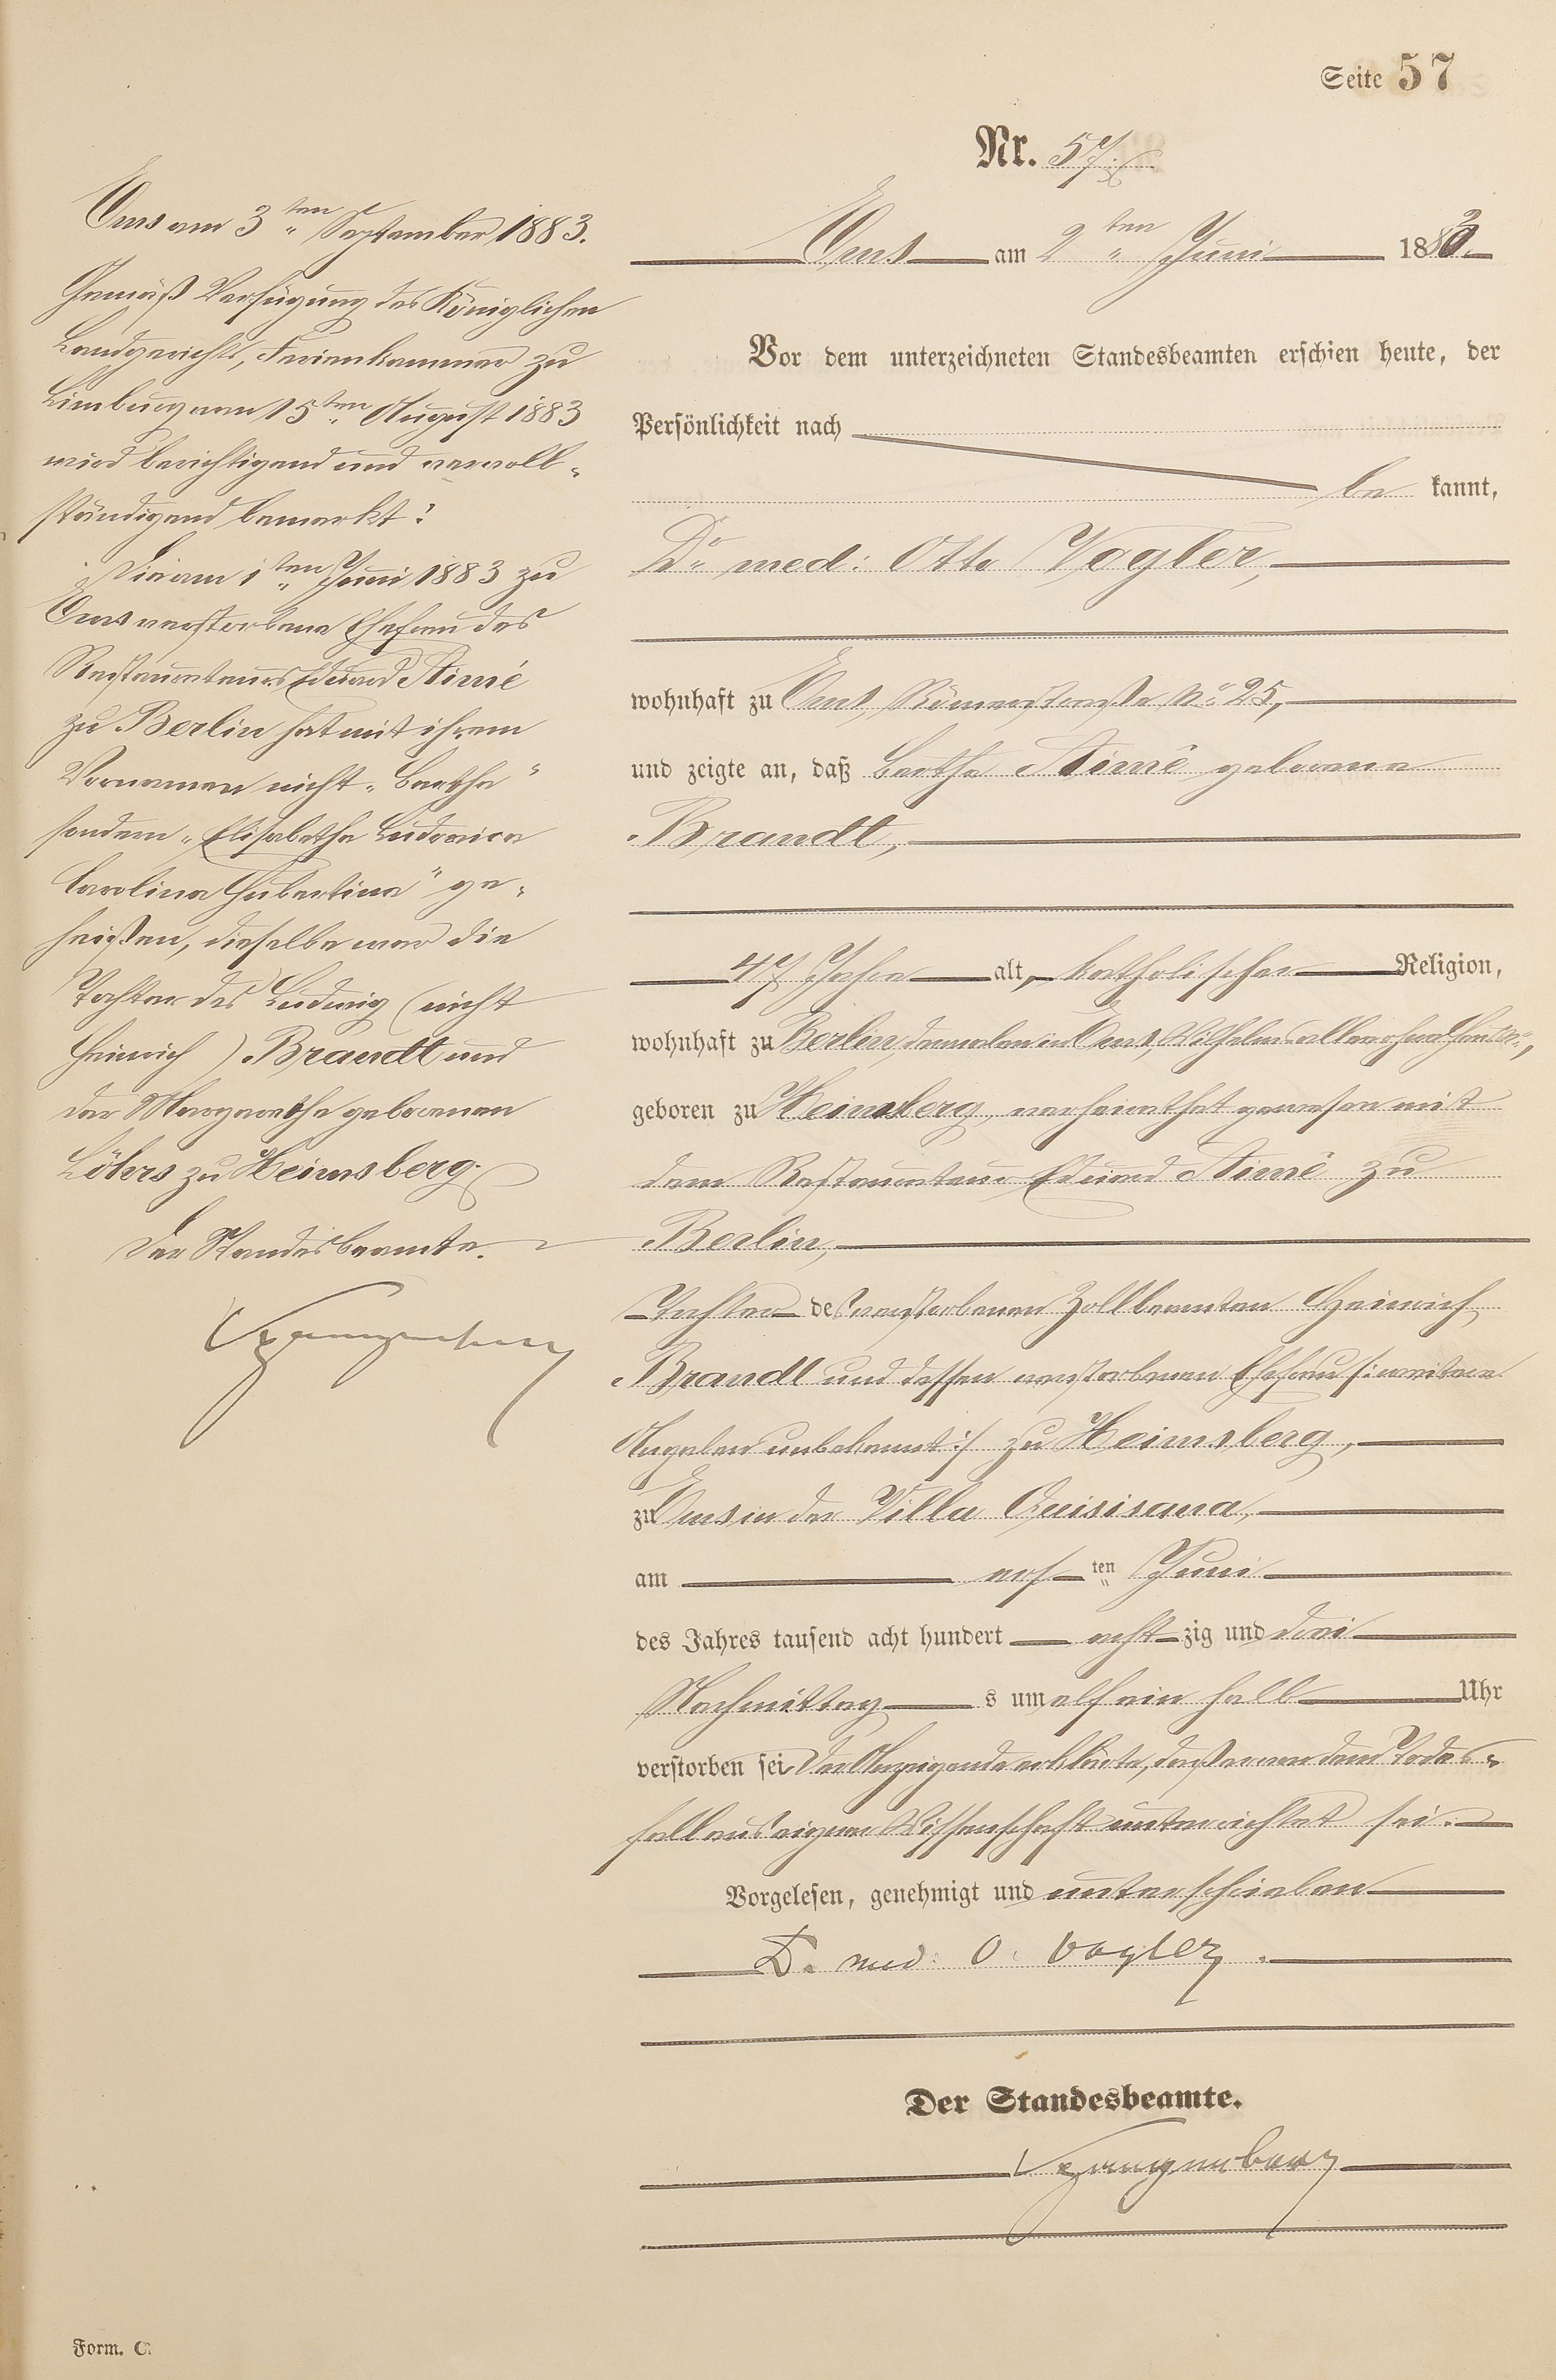 Seite 57
Nr. 57.
Ems am 3ten September 1883.
Gemäß Verfügung des Königlichen
Landgerichts, Ferienkammer zu
Limburg vom 15ten August 1883
wird berichtigend und vervoll-
ständigend bemerkt:
Die am 1ten Juni 1883 zu
Ems verstorbene Ehefrau des
Restaurateurs Eduard Aimé
zu Berlin hat mit ihrem
Vornamen nicht „Bertha"
sondern „Elisabetha Ludovica
Carolina Hubertina" ge-
heißen, dieselbe war die
Tochter des Ludwig (nicht
Heinrich) Brandt und
der Margaretha geborenen
Löhrs zu Heinsberg.
Der Standesbeamte.
Ems am 2ten Juni 1883.
Vor dem unterzeichneten Standesbeamten erschien heute, der
Persönlichkeit nach
be kannt,
Dr. med: Otto Vogler,
wohnhaft zu Ems, Römerstraße No. 25,
und zeigte an, daß Bertha Aimé geborene
Brandt,
47 Jahre alt, katholischer Religion,
wohnhaft zu Berlin, dermalen in Ems, Wilhelmsallee ohne
geboren zu Heinsberg, verheirathet gewesen mit
dem Restaurateur Eduard Aimé zu
Berlin,
Tochter des verstorbenen Zollbeamten Heinrich
Brandt und dessen verstorbenen Ehefrau /: weitere
Angaben unbekannt :/ zu Heinsberg,
zu Ems in der Villa Quisisana,
am ersten Juni
des Jahres tausend acht hundert acht zig und drei
Nachmittag s um elf ein halb Uhr
verstorben sei. Der Anzeigende erklärte, daß er von dem Todes-
fall aus eigener Wissenschaft unterrichtet sei.
Vorgelesen, genehmigt und unterschrieben
Dr. med. O. Vogler.
Der Standesbeamte.
Form. C.